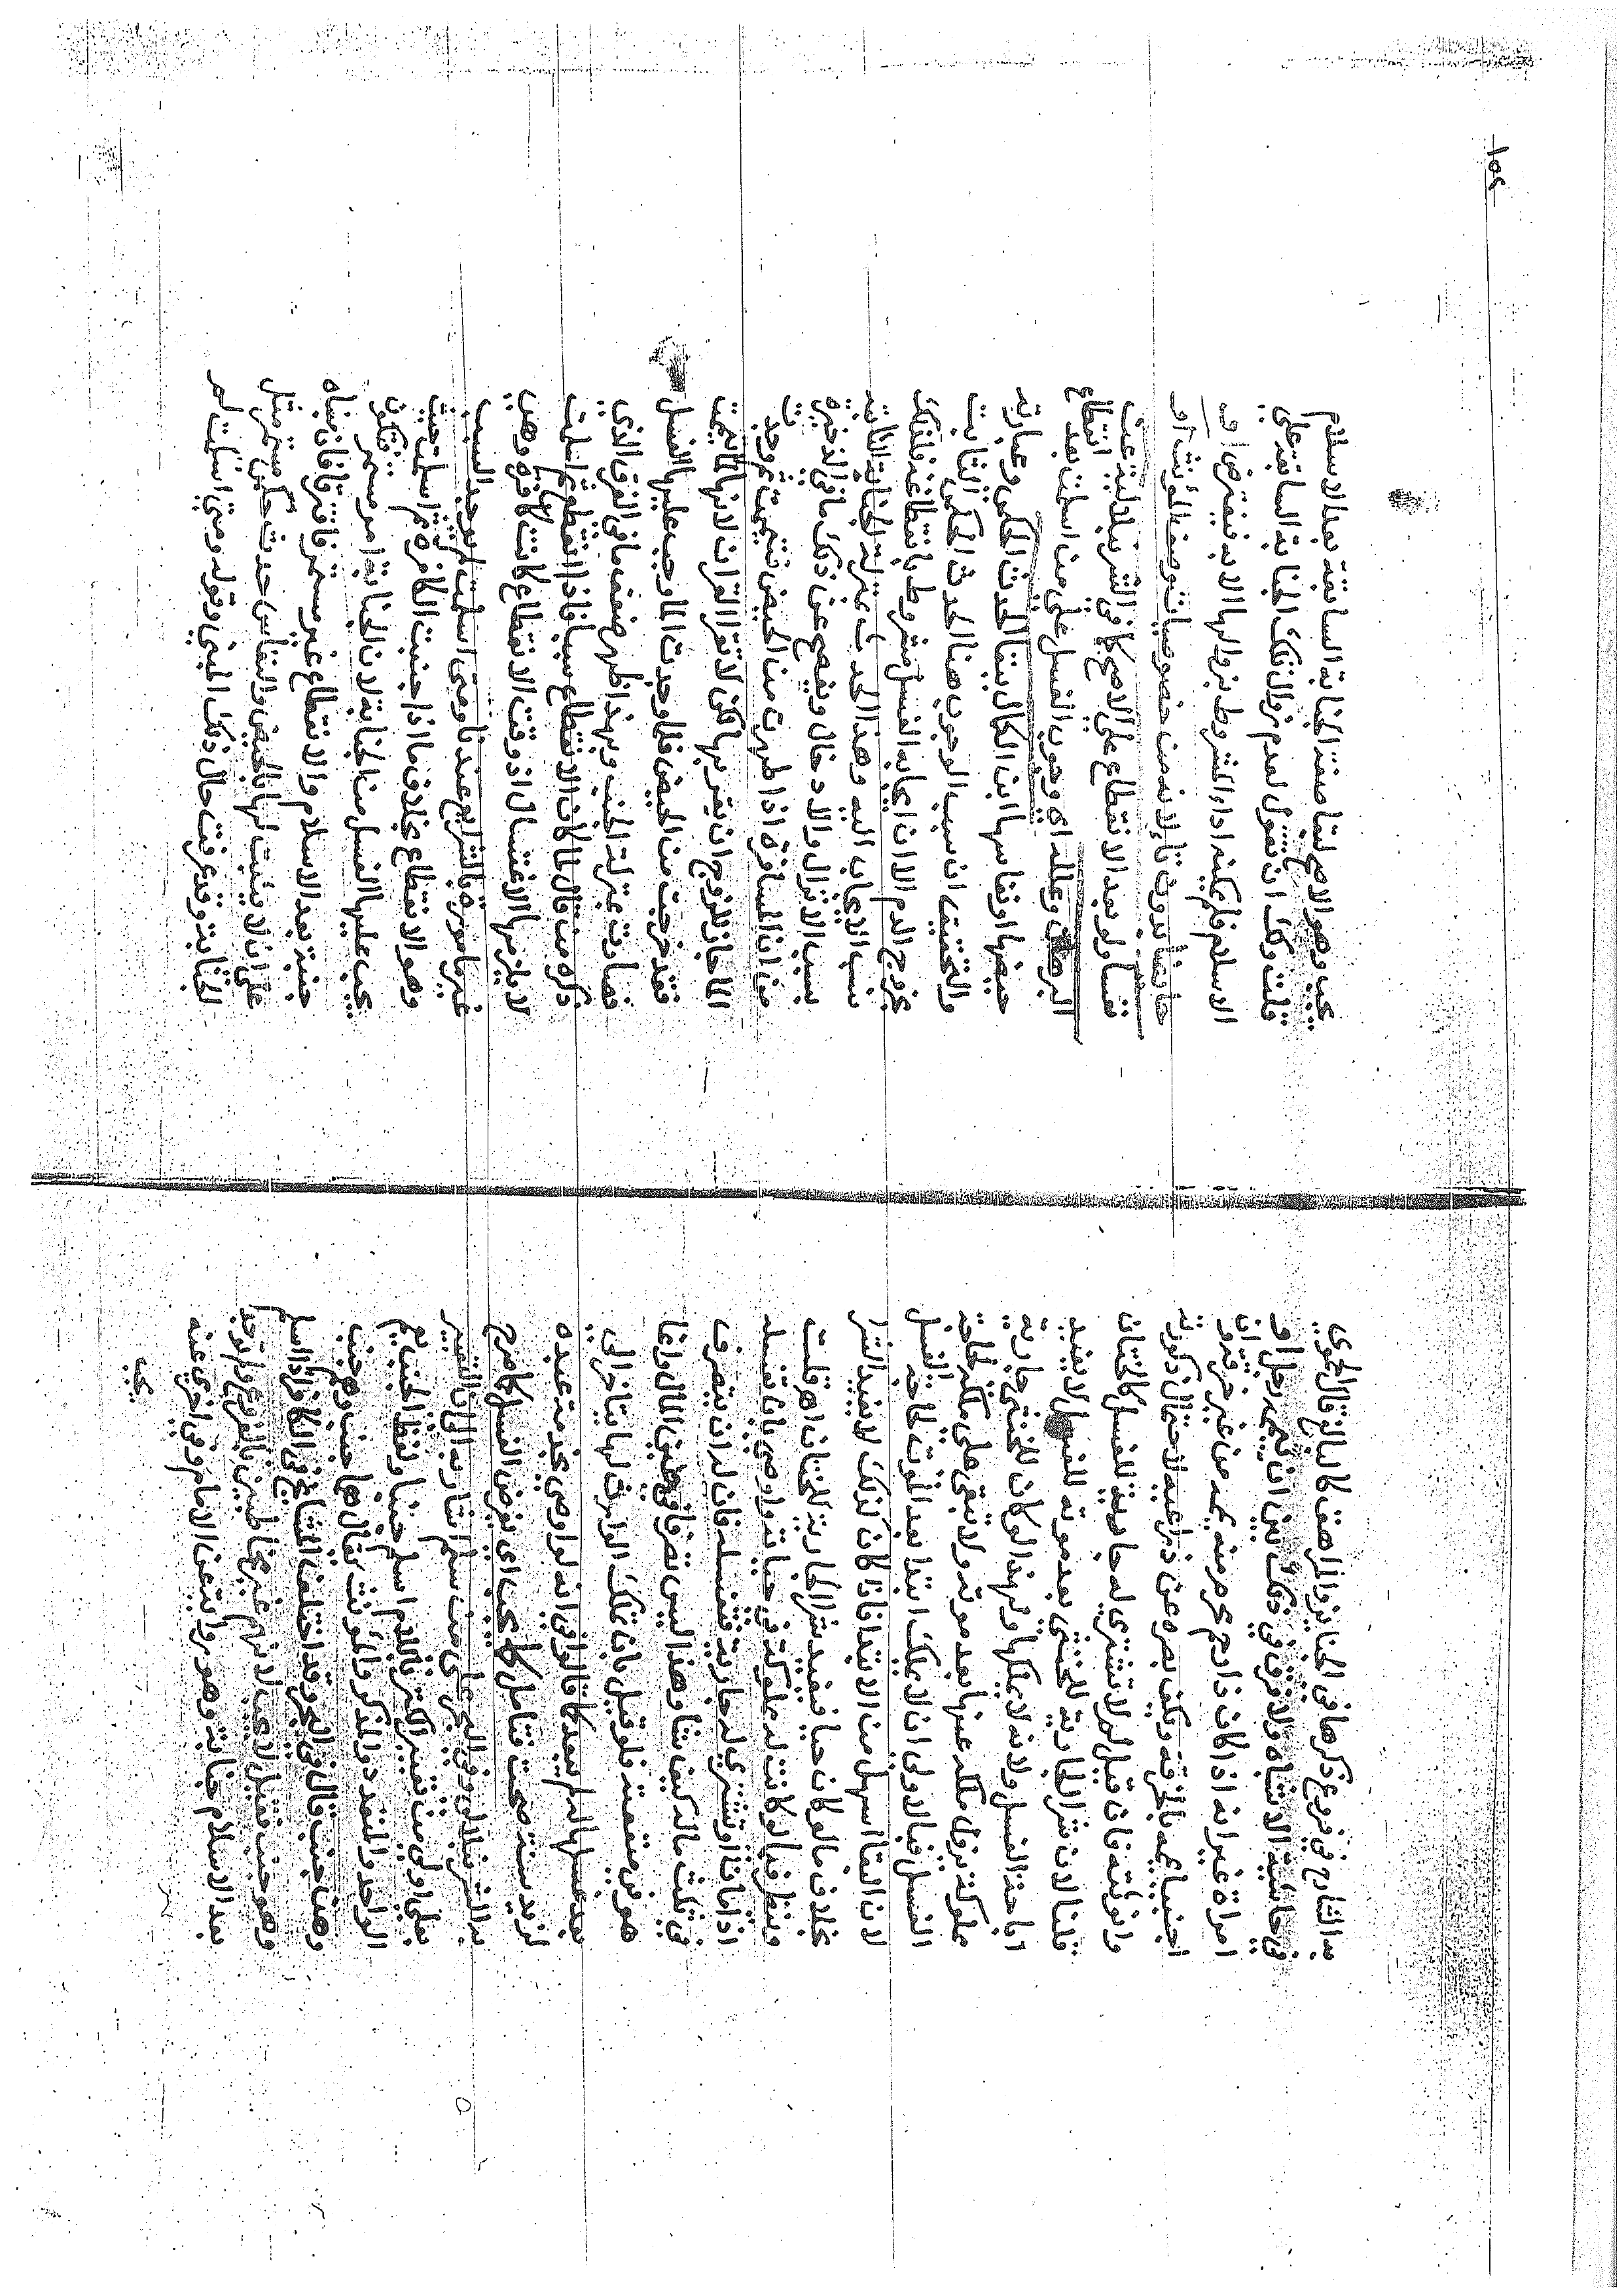 من الشارح في فروع ذكرها في الجنايز والمراهق كالبالغ قال الحموي
في حاشية الاشباه ولا فرق في ذلك بين ان ييمم رجل او
امراة غير انه اذا كان ذا رحم محرم منه يممه من غير خرقة وان
اجنبيا يممه بالخرقة ويكف بصره عن ذراعيه لاحتمال ذكورته
وانوثته فان قيل لم لا تشترى له جارية للغسل كالختان
قلنا لان شرا الجارية للخنثى بعد موته للغسل لا يفيد
اباحة الغسل ولانه لا يملكها وبهذا لو كان للخنثى جارية
مملوكة يزول ملكه عنها بعد موته ولا تبقى على ملكه لحاجة
الغسل فبالاولى ان لا يملك ابتدا بعد الموت لحاجة الغسل
لان البقا اسهل من الابتدا فاذا كان كذلك لا يفيد الشرا
بخلاف ما لو كان حيا فيفيد شرا الجارية للختان اهـ قلت
وينظر فيما لو كانت له مملوكة في حياته واوصى بان تغسله
اذا مات او تشترى له جارية فتغسله فان له ان يتصرف
في ثلث ماله كيف شا وهذا ليس تصرفا في عين المال وانما
هو في منفعته فلو قيل بان تملك الوارث لها يتاخر الى
بعد غسلها له لم يبعد كما قالوا في انه لو اوصى بخدمة عبده
لزيد سنة صحت فتامل كما يجب اي يفرض الغسل كما صرح
به الشرنبلالي وفي البحر على من سلم اشار به الى ان التعبير
بعلى اولى من تعبير اكثر الكلام اسلم جنبا ولفظ الجنب يعم
الواحد والمتعدد والمذكر والمونث يقال هما جنب وهم جنب
وهن جنب قال في البحر وقد اختلف المشايخ في الكافر اذا اسلم
وهو جنب فقيل لا يجب لانهم غير مخاطبين بالفروع ولم توجد
بعد الاسلام جنابة وهو رواية عن الامام وفي اخرى عنه
يجب
يجب وهو الاصح لبقا صفة الجنابة السابقة بعد الاسلام
قلت ولك ان تقول لعدم زوال تلك الجنابة السابقة على
الاسلام فلم يمكنه اداء المشروط بزوالها الا به فيفترض او
حايضا بدون تا لانه من خصوصيات وصف المونث او
نفسا ولو بعد الانقطاع على الاصح كما في الشرنبلالية عن
البرهان وعلله اي وجوب الغسل على من اسلمت بعد انقطاع
حيضها او نفاسها ابن الكمال ببقا الحدث الحكمي وعبارته
والتحقيق ان سبب الوجوب هنا الحدث الحكمي الثابت
بخروج الدم الا ان ايجابه الغسل مشروط بانقطاعه فلذلك
نسب الايجاب اليه وهذا الحدث بمنزلة الجنابة الثابتة
بسبب الانزال والادخال ويفصح عن ذلك ما في الذخيرة
من ان المسافرة اذا طهرت من الحيض فتيممت ثم وجدت
الما جاز للزوج ان يقربها لكن لا تقرا القران لانها لما تيممت
فقد خرجت من الحيض فلما وجدت الما وجب عليها الغسل
فصارت بمنزلة الجنب وبهذا ظهر ضعف ما في الفرق الذي
ذكره من قال لما كان الانقطاع سببا فاذا انقطع ثم اسلمت
لا يلزمها الاغتسال اذ وقت الانقطاع كانت كافرة وهي
غير مامورة بالشرايع عندنا ومتى اسلمت لم يوجد السبب
وهو الانقطاع بخلاف ما اذا اجنبت الكافرة ثم اسلمت حيث
يجب عليها الغسل من الجنابة لان الجنابة امر مستمر فتكون
جنبة بعد الاسلام والانقطاع غير مستمر فافترقا فان مبناه
على ان لا يثبت لها بالحيض والنفاس حدث حكمي مستمر مثل
الجنابة وقد عرفت حال ذلك المبنى وقوله ومتى اسلمت لم